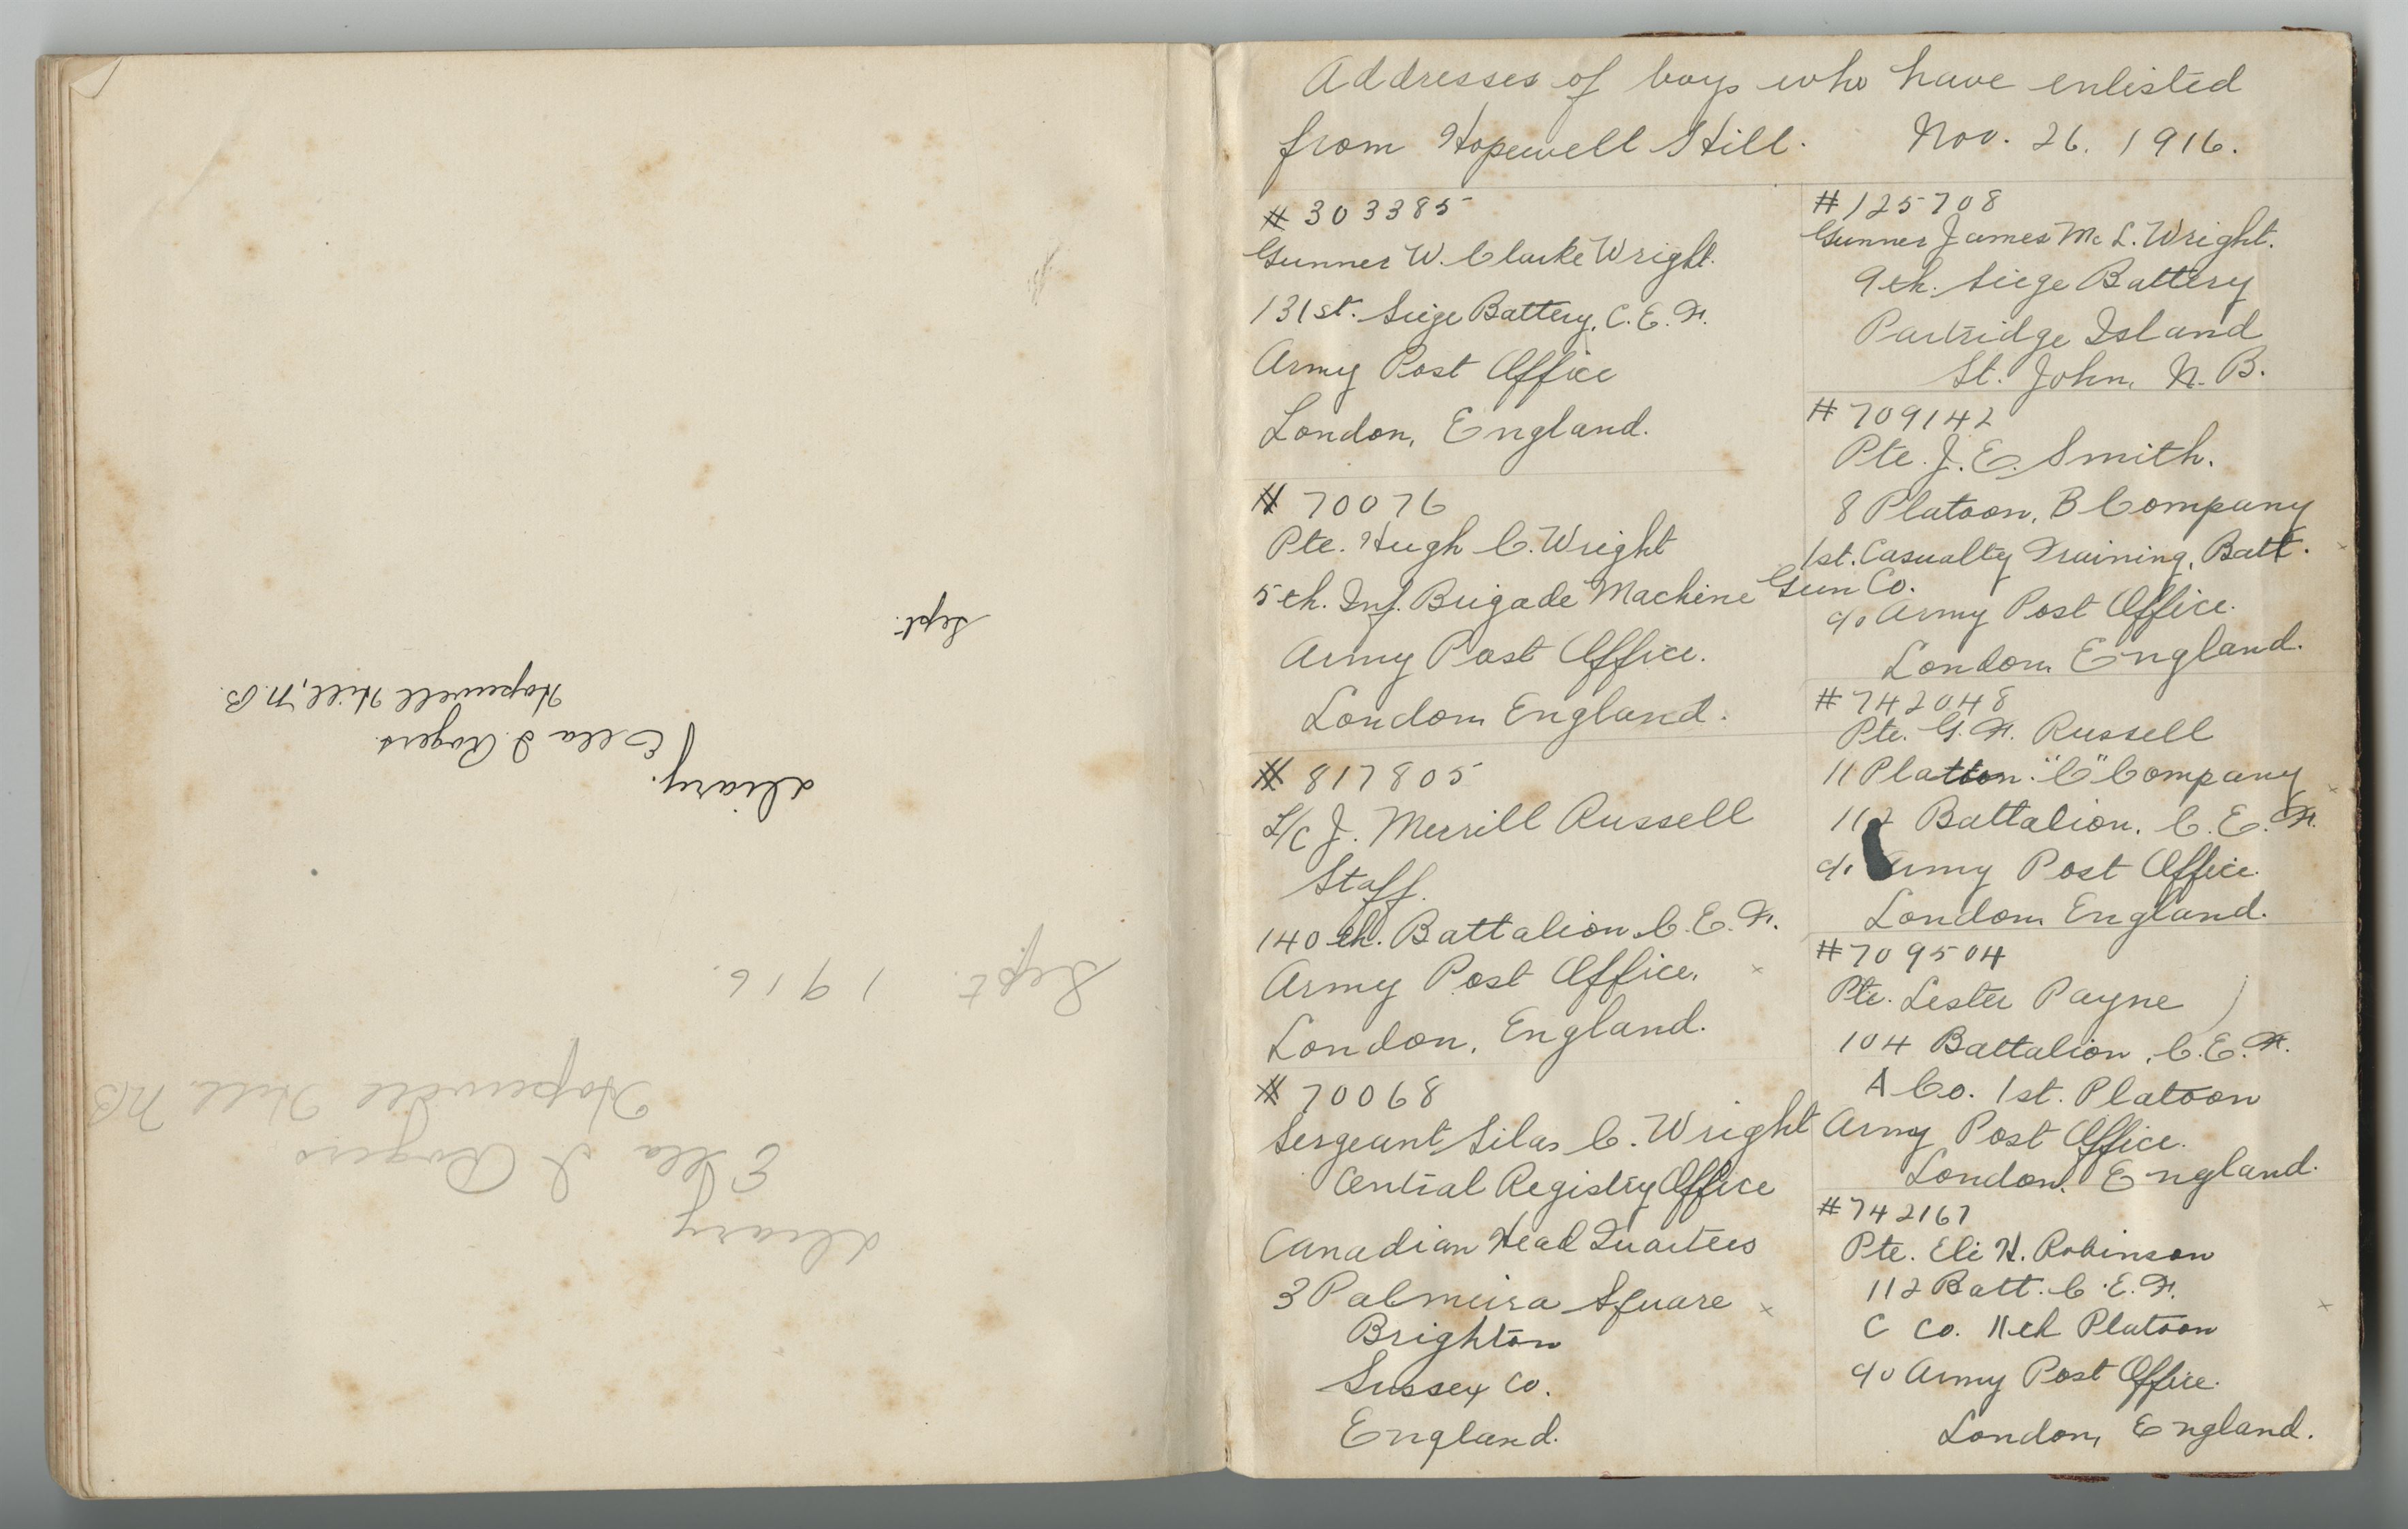 diary.
Ella I. Rogers.
Hopewell Hill, N.B.
Sept.
diary
Ella I Rogers
Hopewell Hill NB
Sept. 1916.
Addresses of boys who have enlisted
from Hopewell Hill. Nov. 26. 1916.
# 303385
Gunner W. Clarke Wright.
131st. Siege Battery, C. E. F.
Army Post Office
London, England.
# 70076
Pte. Hugh C. Wright
5th. Inf. Brigade Machine Gun Co.
Army Post Office.
London England.
# 817805
L/C J. Merrill Russell
Staff.
140th. Battalion C. E. F.
Army Post Office.
London, England.
# 70068
Sergeant Silas C. Wright
Central Registry Office
Canadian Head Quarters
3 Palmeira Square
Brighton
Sussex Co.
England.
# 125708
Gunner James Mc L. Wright.
9th. Siege Battery
Partridge Island
St. John, N. B.
# 709142
Pte. J. E. Smith.
8 Platoon, B Company
1st. Casualty Training, Batt.
c/o Army Post Office.
London England.
# 742048
Pte. G. F. Russell
11 Platoon. "C" Company
112 Battalion. C. E. F.
c/o Army Post Office.
London England.
# 709504
Pte. Lester Payne
104 Battalion, C. E. F.
A Co. 1st. Platoon
Army Post Office.
London, England.
# 742167
Pte. Eli H. Robinson
112 Batt. C. E. F.
C Co. 11th Platoon
c/o Army Post Office.
London, England.